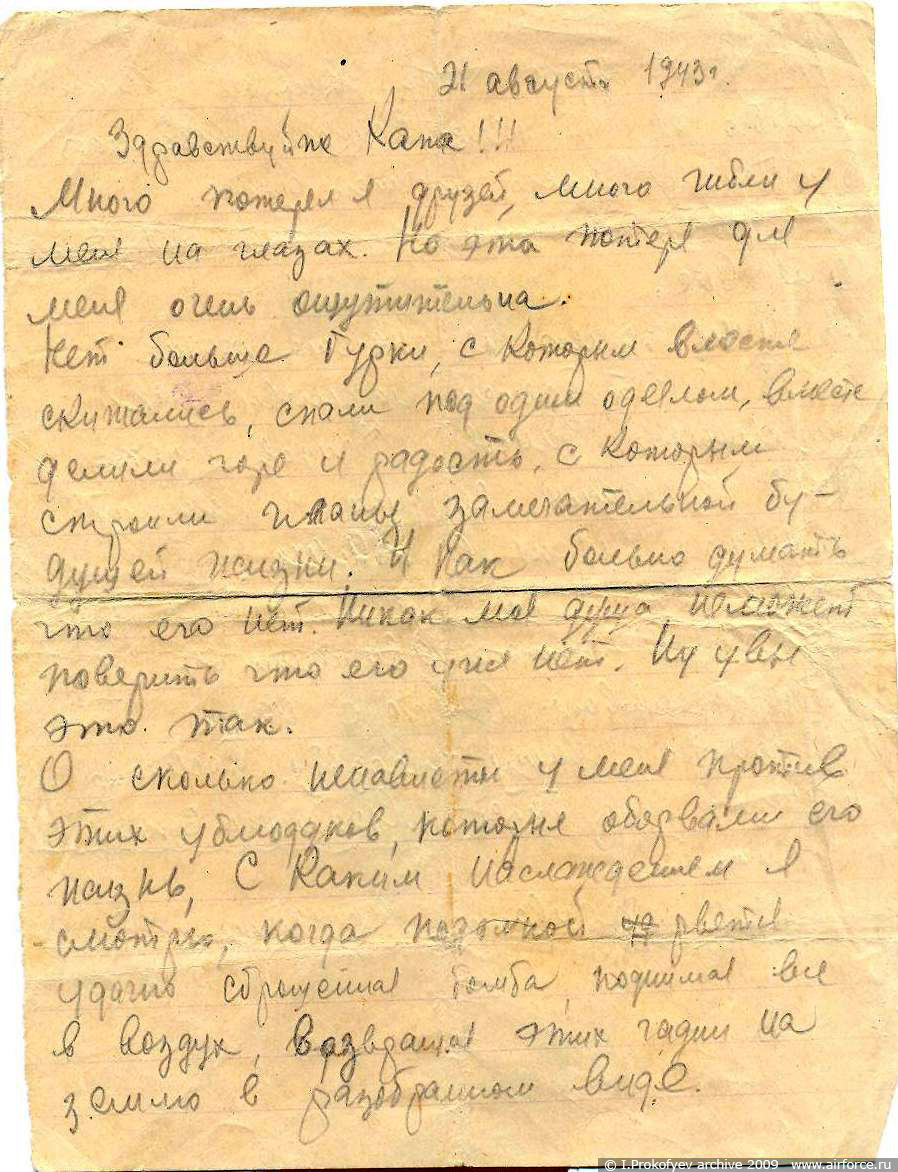 21 августа 1943г.
Здравствуйте Капа!!!
Много потерял я друзей, много гибли у
меня на глазах. Но эта потеря для
меня очень ощутительна.
Нет больше Гурки, с которым вместе
скитались, спали под одним одеялом, вместе
делили горе и радость, с которым
строили планы замечательной бу-
дущей жизни. И как больно думать
что его нет. Никак моя душа неможет
поверить что его уже нет. Ну увы
это так.
О сколько ненависти у меня против
этих ублюдков, которые оборвали его
жизнь, С каким наслаждением я
смотрю, когда подомной рвется
удачно сброшенная бомба, поднимая все
в воздух, возвращая этих гадин на
землю в разобранном виде.
© I.Prokofyev archive 2009 www.airforce.ru